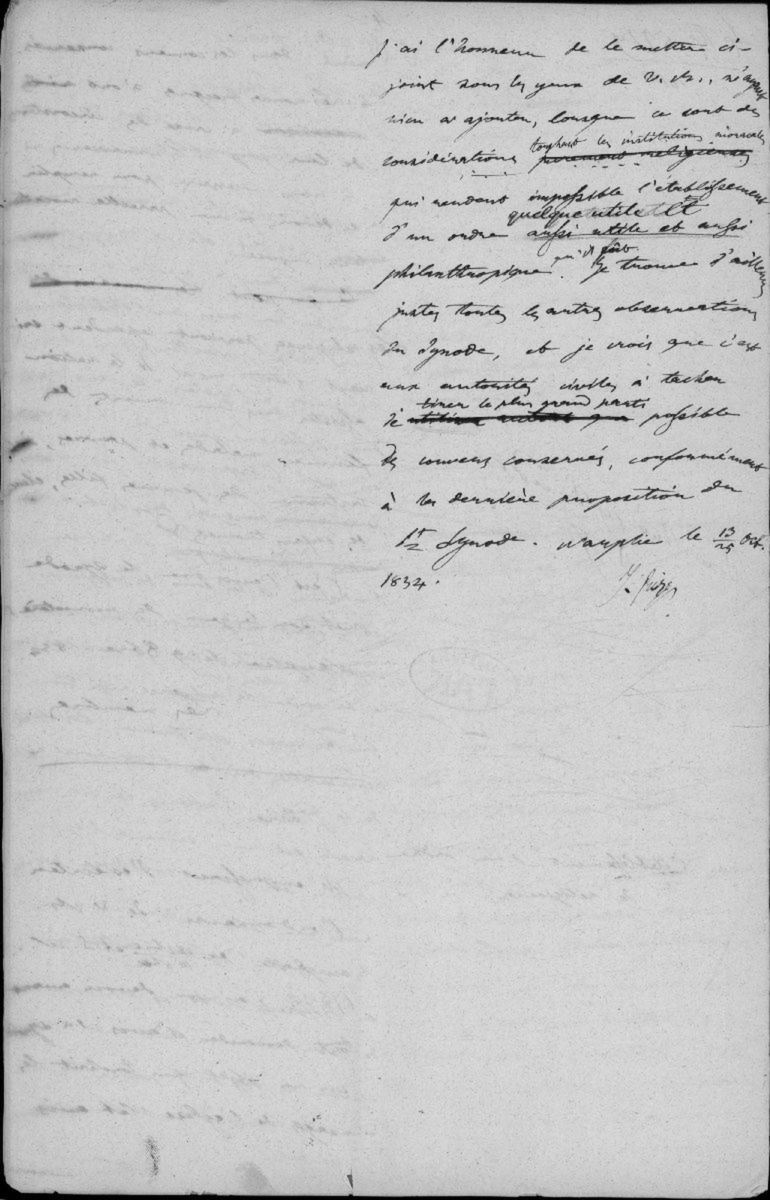 j'ai l'honneur de le mettre ci-
joint sous les yeux de V. M., n'ayant
rien a ajouter, lorsque ce sont des
touchant les institutions monacales
considérations purement religieuses
qui rendent impossible l'établissement
quelque utile et
d'un ordre aussi utile et aussi
qu'il fût
philanthropique. Je trouve d'ailleurs
justes toutes les autres observations
du Synode, et je crois que c'est
aux autorités civiles à tacher
tirer le plus grand parti
de utiliser autant que possible
des couvens conservés, conformément
à la dernière proposition du
St Synode. Nauplie le 13/25 Oct.
1834.